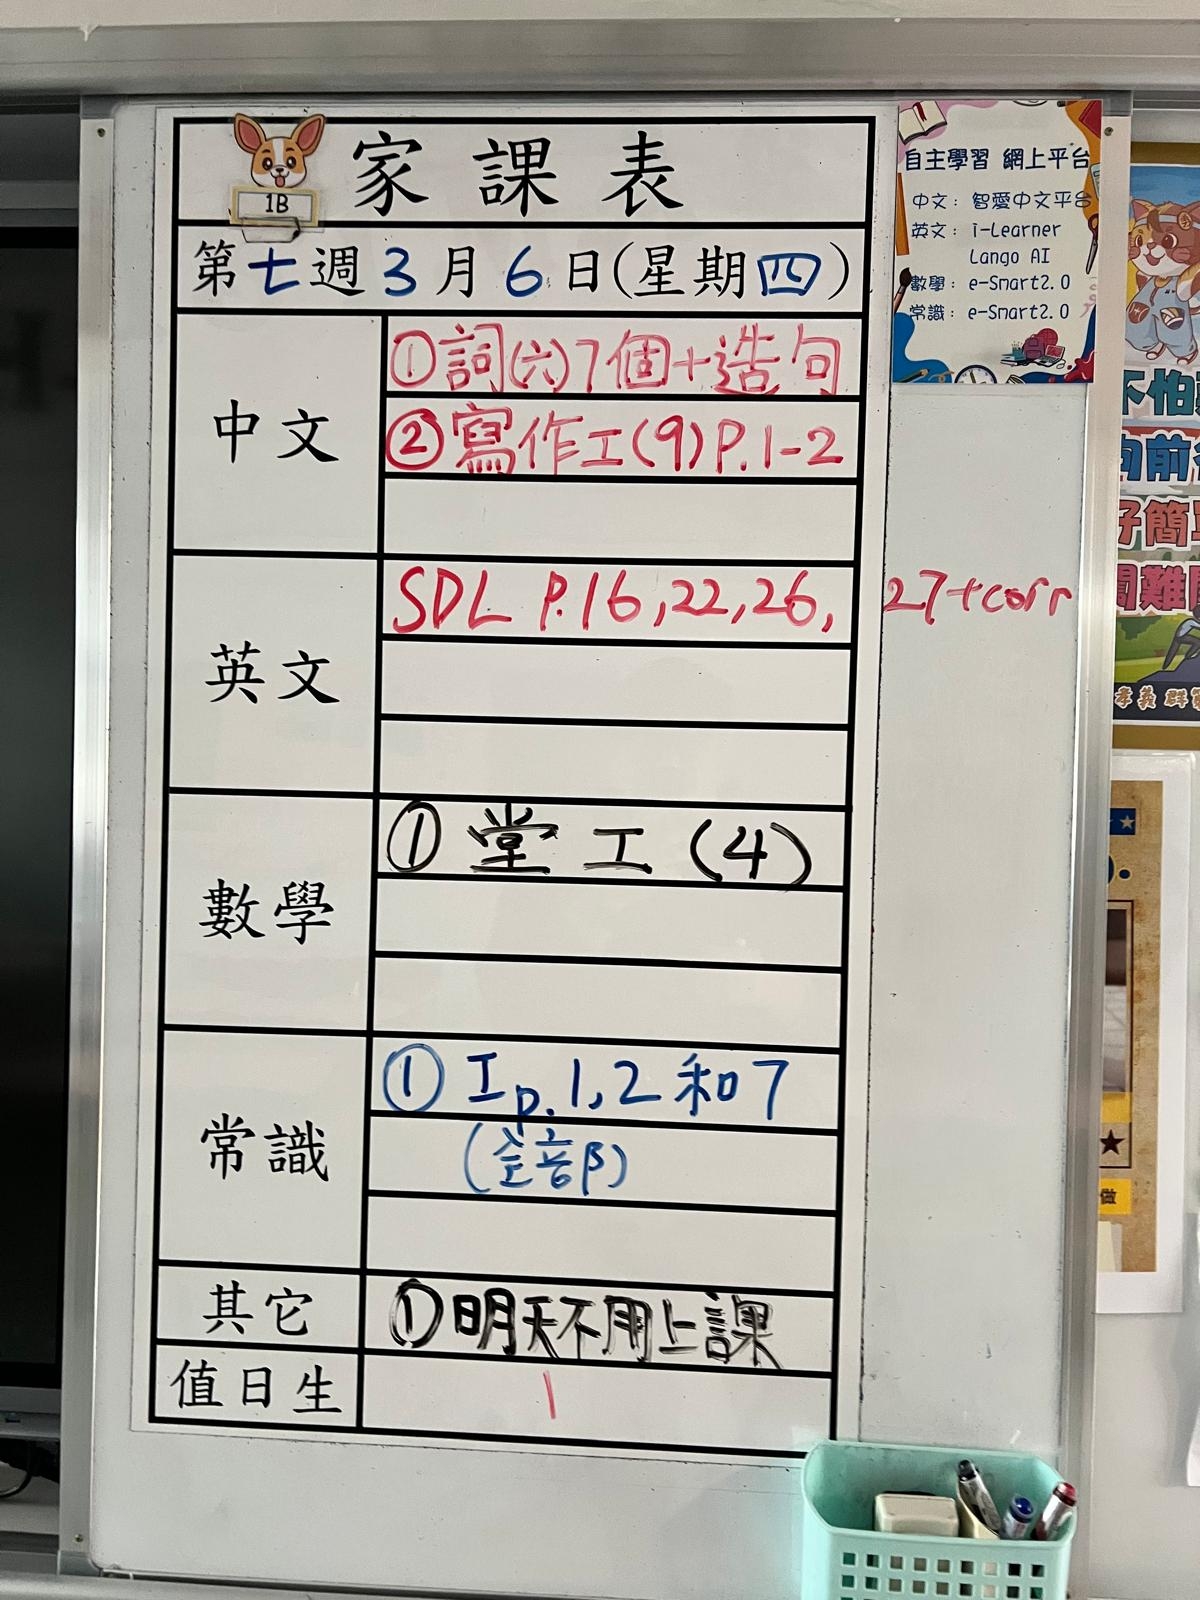 1B
家課表
第七週3月6日(星期四)
中文
①詞(六)7個+造句
②寫作工(9)P.1-2
英文
SDL P.16,22,26,27+corr
數學
①堂工(4)
常識
①工p.1,2和7
(全部)
其它
①明天不用上課
值日生
1
自主學習 網上平台
中文：智愛中文平台
英文：i-Learner
Lango AI
數學：e-Smart2.0
常識：e-Smart2.0
不怕
向前
好簡單
闖難關
孝義 群
做